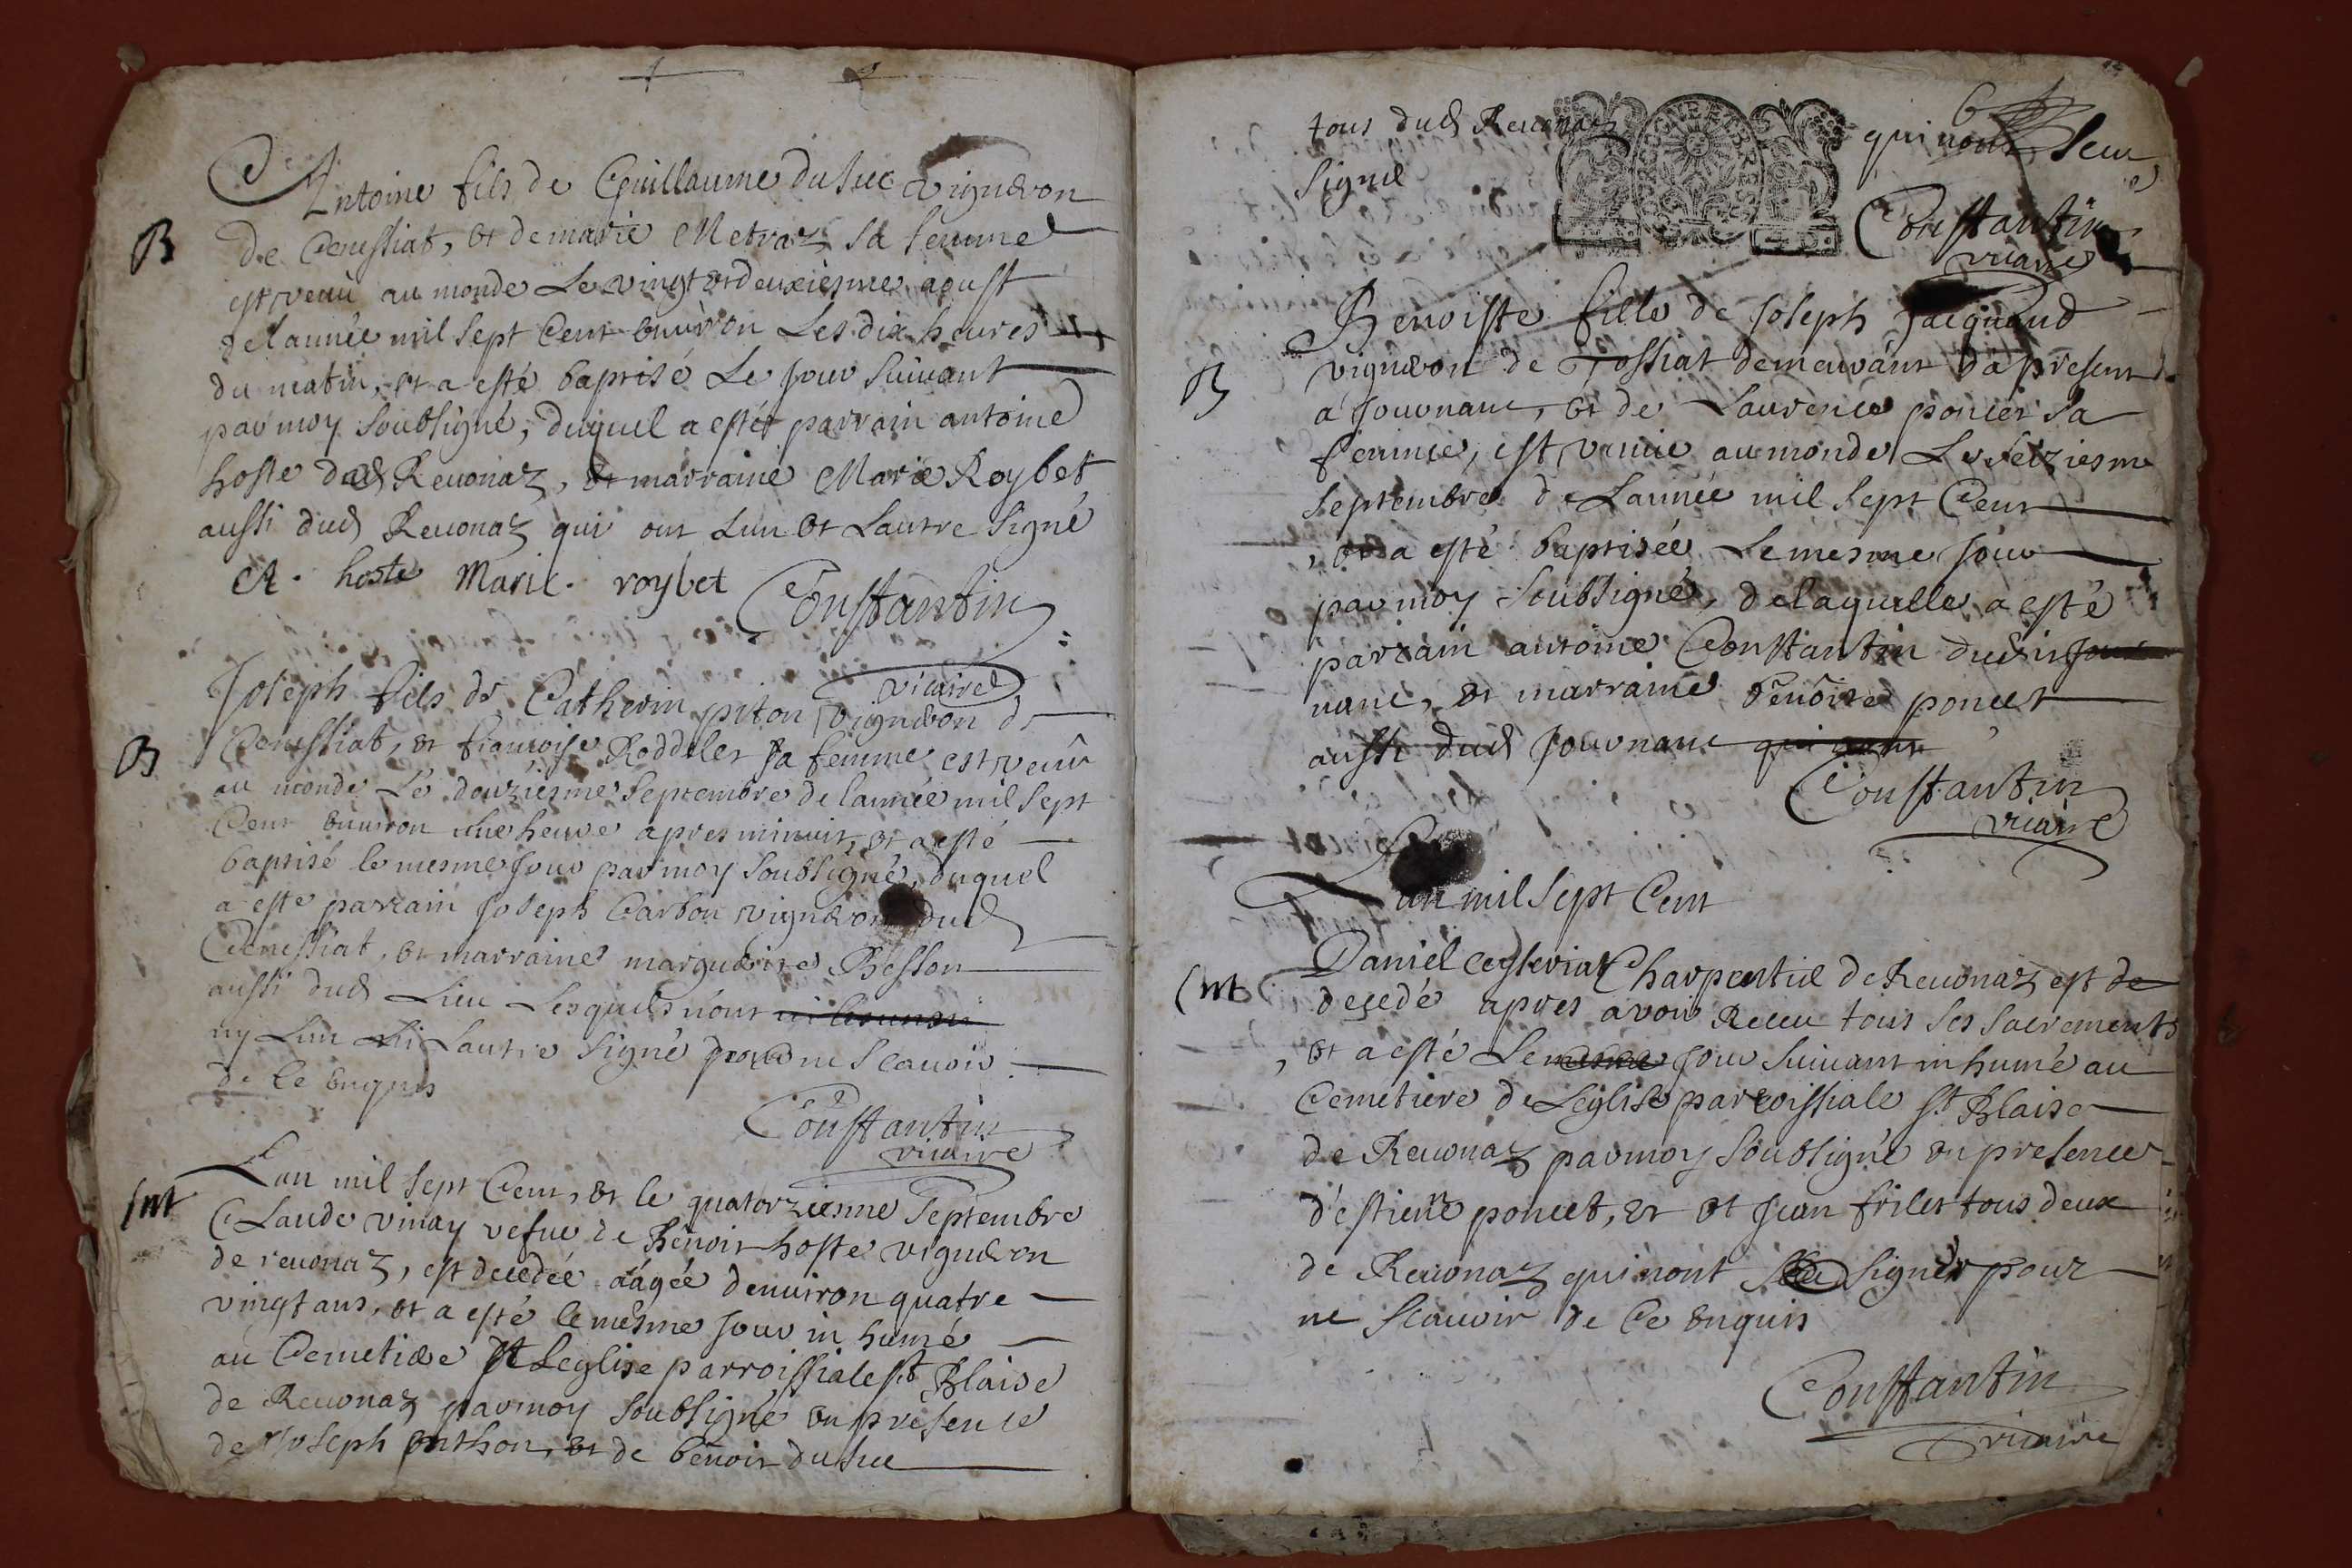 Antoine fils de Guillaume du suc vigneron
B
de Cenissiat, et de marie Metraz sa femme
est venu au monde Le vingt et deuxiesme aoust
de lannée mil sept Cent environ Les dix heures
du matin, et a esté baptisé Le jour suivant
par moy soubsigné, duquel a esté parrain antoine
hoste dud Reuonaz, et marraine Marie Roybet
aussi dud Reuonaz qui ont Lun et Lautre signé
A. hoste Marie. roybet Constantin
vicaire
Joseph fils de Catherin piton vigneron de
B
Cenissiat, et francoise Roddeler sa femme est venu
au monde Le douziesme Septembre de lannée mil sept
Cent environ une heure apres minuit, et a esté
baptisé le mesme jour par moy soubsigné, duquel
a este parrain Joseph Carbon vigneron dud
Cenissiat, et marraine marguerite Besson
aussi dud Lieu Lesquels nont
ny Lun ni Lautre signé pour ne scauoir
de Ce enquis
Constantin
vicaire
Lan mil sept Cent, et le quatorziesme Septembre
Ent
Claude vinay vefue de Benoit hoste vigneron
de reuonaz, est decedée aágée denuiron quatre
vingt ans, et a esté le mesme jour in humé
au Cemetiere de Leglise parroissiale st Blaise
de Reuonaz par moy soubsigné en presence
de Joseph anthon, et de benoit du suc
6
tous dud Reuonaz qui nont sceu
signé
Constantin
vicaire
Benoiste fille de Joseph Jacquand
B
vigneron de Tossiat demeurant dá present
a Journanc, et de Laurence poncet sa
femme, est venue au monde Le seiziesme
septembre de Lannée mil sept Cent
, et a esté baptisée Le mesme jour
par moy soubsigné, de laquelle a esté
parrain antoine Constantin dud Jour
nanc, et marraine benoite poncet
aussi dud Journanc qui nont
Constantin
vicaire
Lan mil sept Cent
Ent
Daniel Charpentier de Reuonaz est de
decedé apres avoir Receu tous ses sacrements
, et a esté Le mesme jour suivant in humé au
Cemetiere de Leglise parroissiale st Blaise
de Reuonaz par moy soubsigné en presence
d'estiene poncet, et et Jean frilet tous deux
de Reuonaz qui nont signér pour
ne scauoir de Ce enquis
Constantin
vicaire